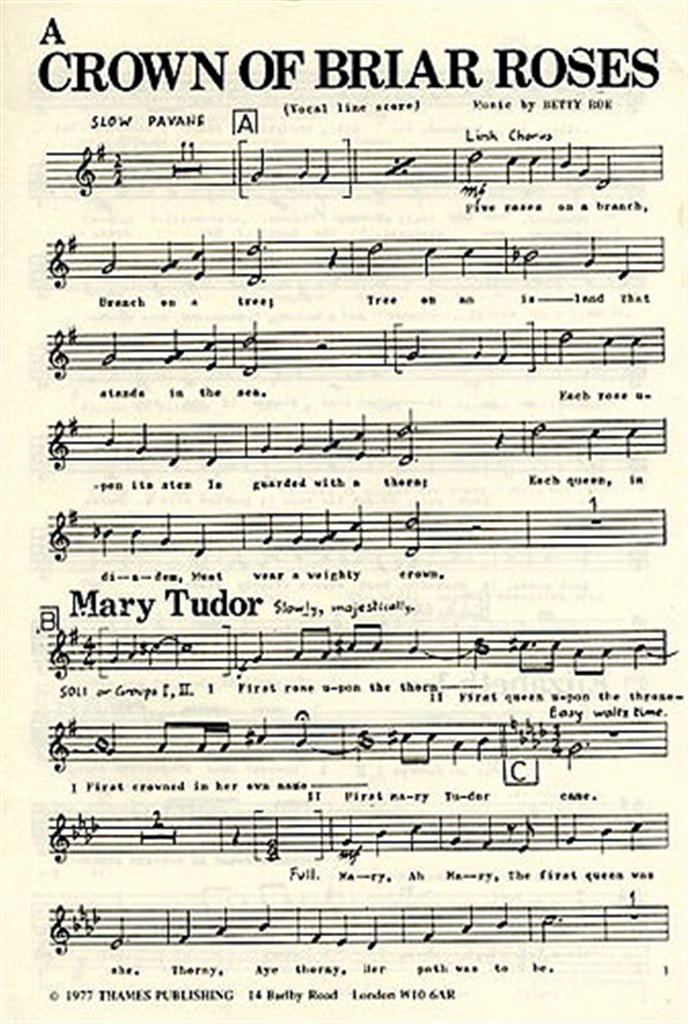 A
CROWN OF BRIAR ROSES
(Vocal line score) Music by BETTY ROE
SLOW PAVANE A Link Chorus
11
mf
Five roses on a branch,
Branch on a tree; Tree on an is——land That
stands in the sea. Each rose u-
-pon its stem Is guarded with a thorn; Each queen, in
1
di-a-dem, Must wear a weighty crown.
B Mary Tudor Slowly, majestically.
SOLI or Groups I, II. I First rose u-pon the thorn——
II First queen u-pon the throne-
Easy waltz time.
C
I First crowned in her own name——
II First Ma-ry Tu-dor came.
2
mf
Full. Ma--ry, Ah Ma--ry, the first queen was
1
she. Thorny, Aye thorny, Her path was to be.
1
© 1977 THAMES PUBLISHING 14 Barlby Road London W10 6AR